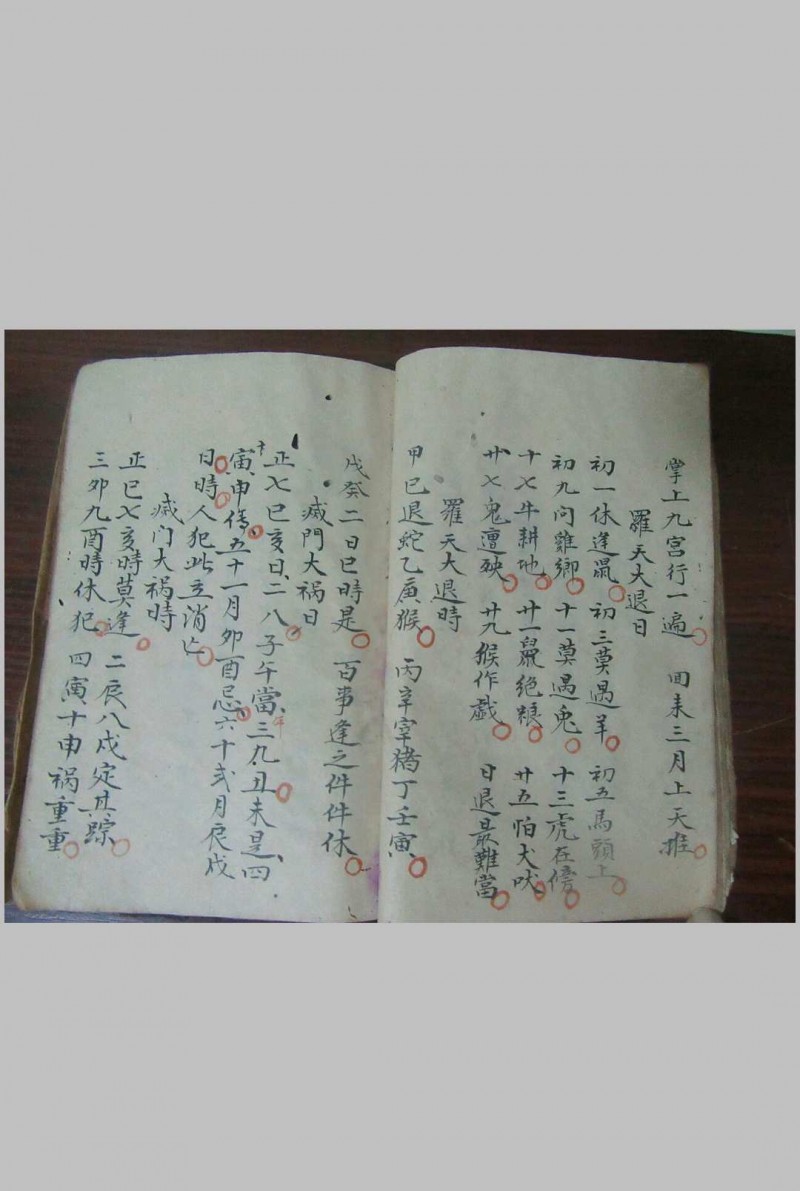 掌上九宮行一遍 回来三月上天推
羅天大退日
初一休逢鼠 初三莫遇羊 初五馬頭上
初九问雞鄉 十一莫遇兎 十三虎在傍
十七牛耕地 廿一鼠絕粮 廿五怕犬吠
廿七鬼遭殃 廿九猴作戯 日退最難當
羅天大退時
甲巳退蛇乙庚猴 丙辛宰猪丁壬寅
戊癸二日巳時是 百事逢之件件休
滅門大祸日
正七巳亥日二八子午當年三九丑未是四
十寅申傍五十一月卯酉忌六十弍月辰戌
日時人犯此立消亡
滅门大祸時
正巳七亥時莫逢 二辰八戌定其踪
三卯九酉時休犯 四寅十申祸重重